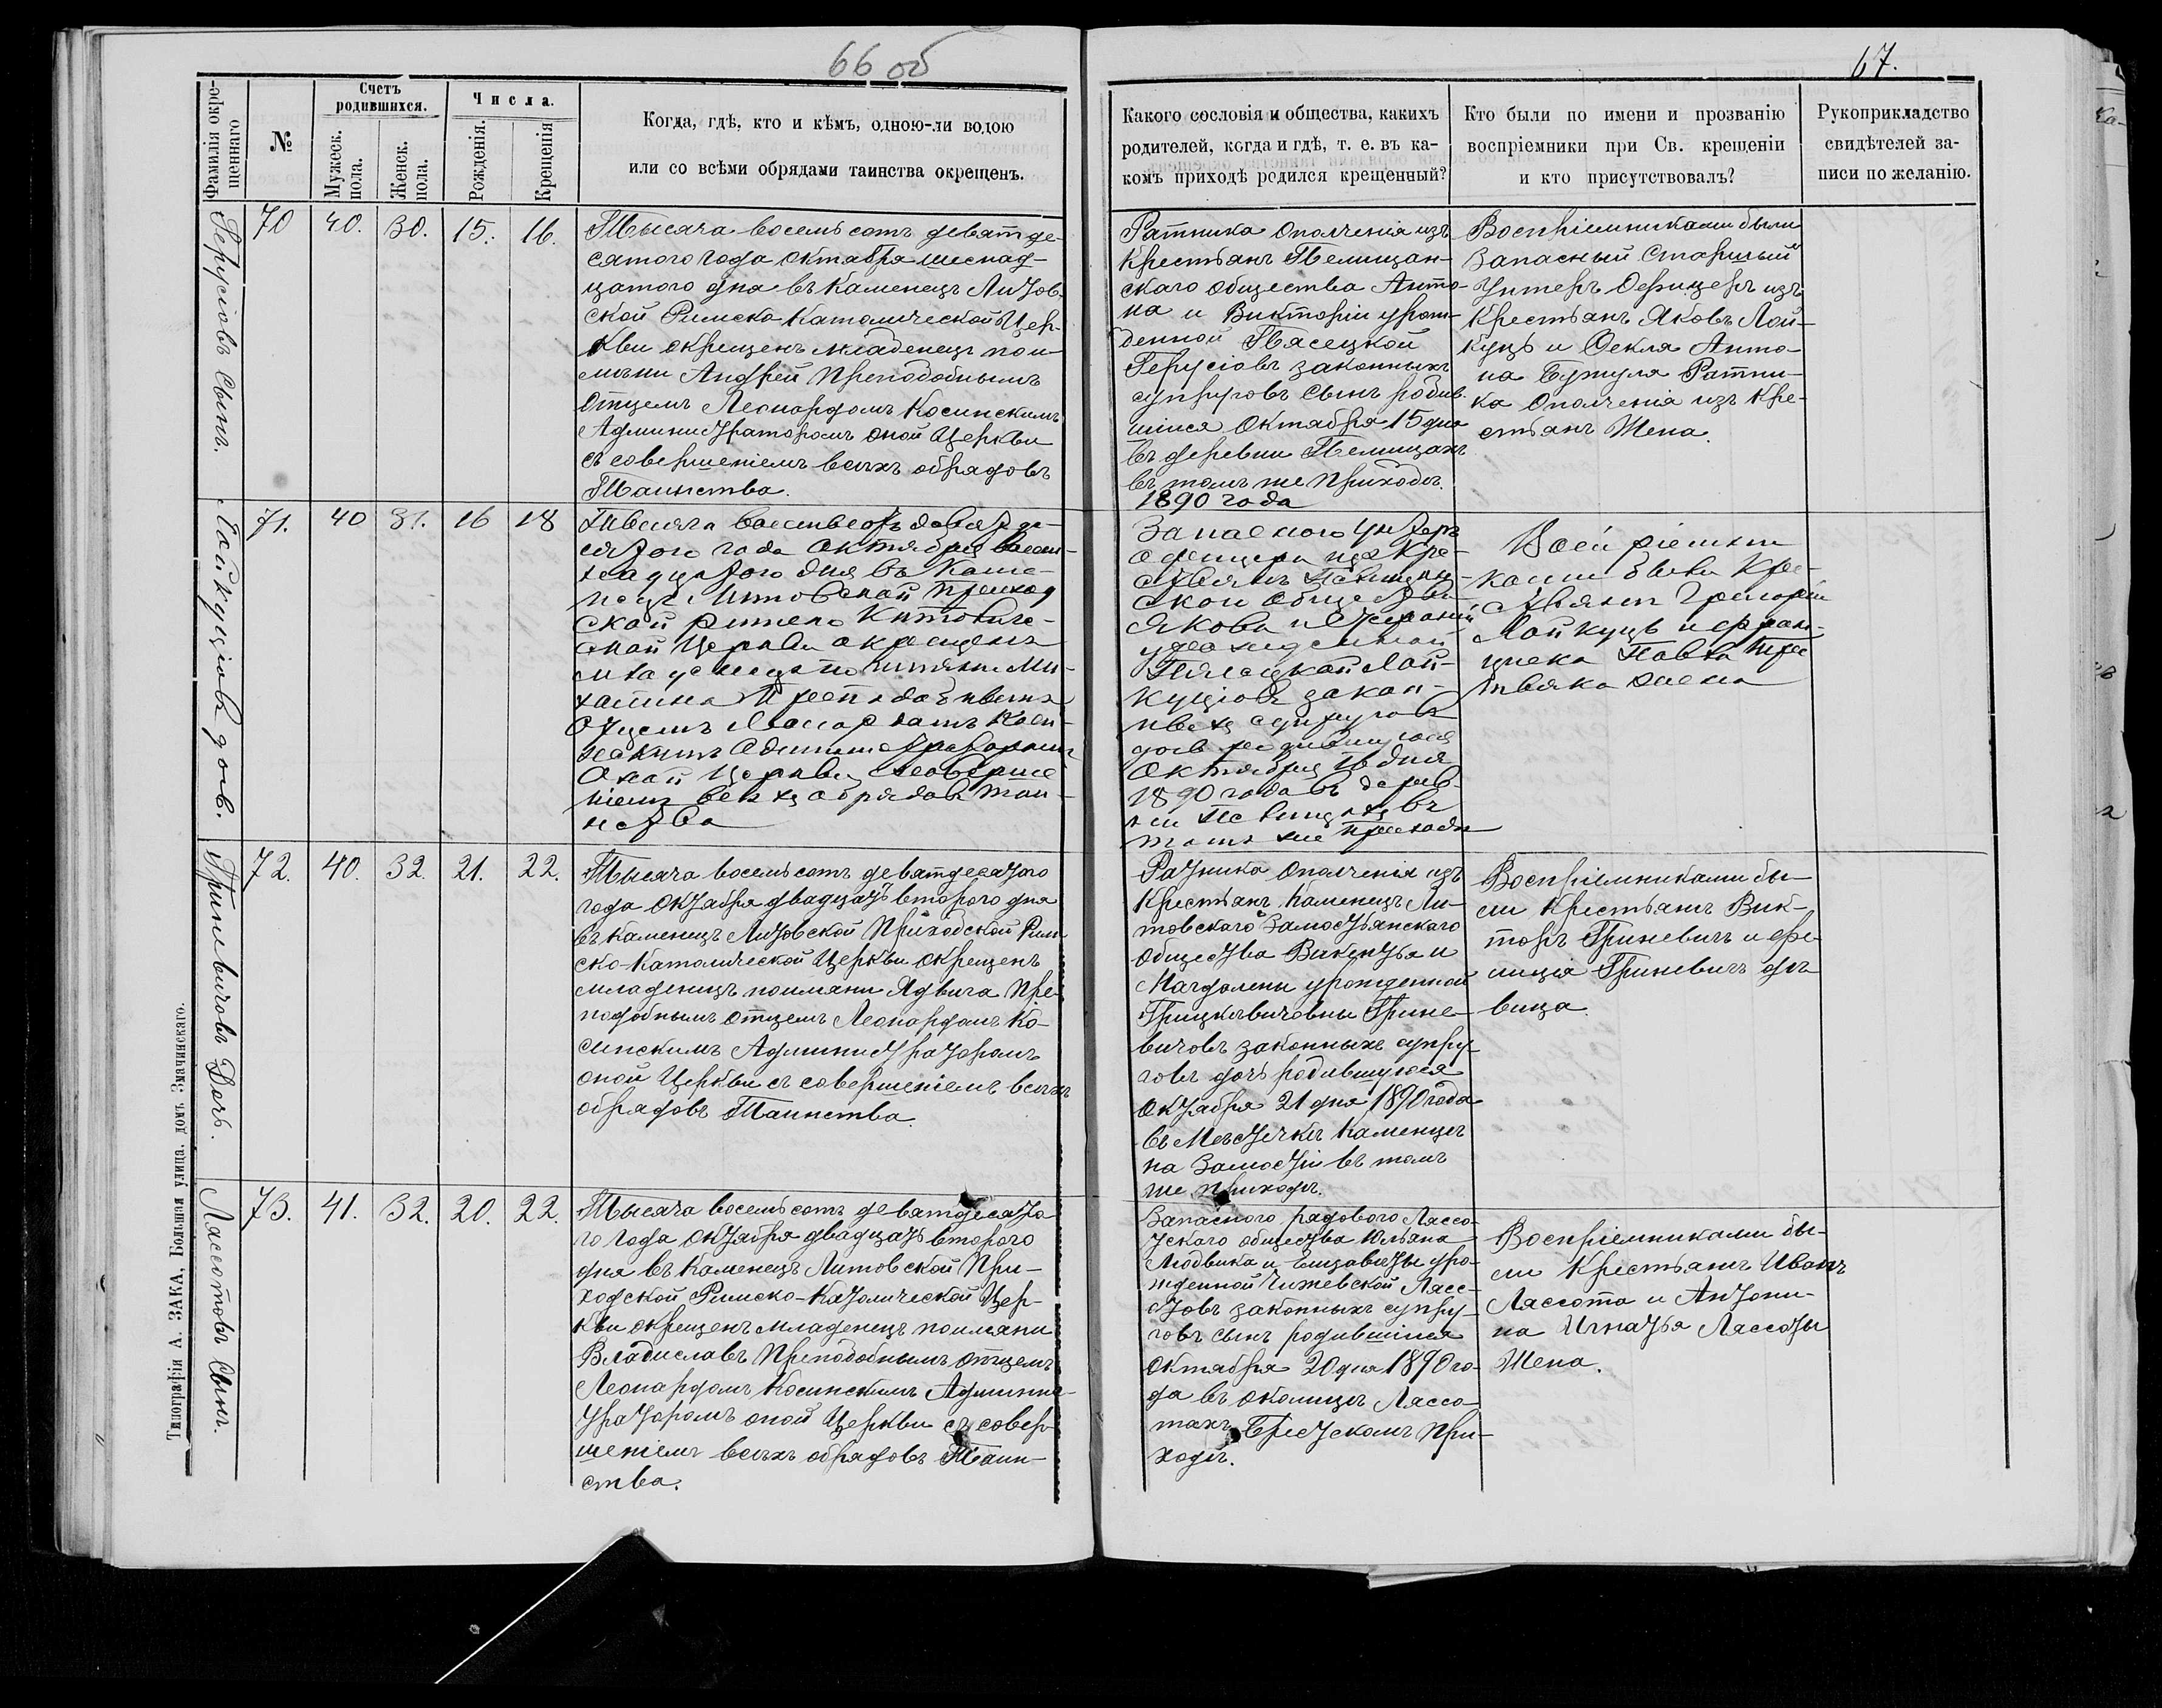 66 об
67.
Фамилія окре-
щеннаго
№
Счетъ
родившихся.
Мужеск.
пола.
Женск.
пола.
Числа.
Рожденія.
Крещенія
Когда, гдѣ, кто и кѣмъ, одною-ли водою
или со всѣми обрядами таинства окрещенъ.
Какого сословія и общества, какихъ
родителей, когда и гдѣ, т. е. въ ка-
комъ приходѣ родился крещенный?
Кто были по имени и прозванію
воспріемники при Св. крещеніи
и кто присутствовалъ?
Рукоприкладство
свидѣтелей за-
писи по желанію.
Герусіовъ Сынъ.
70 40. 30. 15. 16.
Тысяча восемьсотъ деватде-
сятого года Октабря шеснад-
цатого дня въ Каменецъ Литов-
ской Римско-Католической Цер-
кви окрещенъ младенецъ пои-
мѣни Андрей Преподобнымъ
Отцемъ Леонардомъ Косинскимъ
Администраторомъ оной Церкви
съ совершеніемъ всѣхъ обрядовъ
Таинства.
Ратника Ополченія изъ
Крестьянъ Пелищан-
скаго Общества Анто-
на и Викторіи урож-
денной Пясецкой
Герусіовъ законныхъ
супруговъ Сынъ родив-
шійся Октабря 15 дня
въ деревни Пелищахъ
въ томъ же Приходѣ.
1890 года
Воспріемниками были
Запасный Старшый
Унтеръ Офицеръ изъ
Крестьянъ Яковъ Лой-
куцъ и Фекля Анто-
на Ратни-
ка Ополченія изъ Кре-
стьянъ Жена.
Лойкуціовъ дочь.
71. 40 31. 16 18
Тысяча восемьсотъ девятде-
сятого года Октября восем-
надцатого дня въ Каме-
нецъ Литовской Приход
ской Римско Католиче-
ской Церкви окрещенъ
младенецъ поимяни Ми-
халина Преподобнымъ
Отцемъ Леонардомъ Коси-
нскимъ Администраторомъ
Оной Церкви съсоверше
ніемъ всѣхъ обрядовъ таи-
нства
Запасного Унтеръ
офицера изъ Кре-
стьянъ Пелищан-
ской общества
Якова и
урожденной
Пясецкой Лой-
куціовъ закон-
ныхъ супруговъ
дочь родившуюся
Октября 16 дня
1890 года въ дерев-
ни Пелищахъ въ
томъ же приходѣ
Воспріемни-
ками были Кре-
стьянъ Григорій
Лойкуцъ и Фран-
цишка Павла Кре
стьянка жена
Гриневичовъ Дочь.
72. 40. 32. 21. 22.
Тысяча восемьсотъ деватдесатого
года Октабря двадцать второго дня
въ Каменецъ Литовской Приходской Рим
ско-Католической Церкви окрещенъ
младенецъ поимяни Ядвига Пре-
подобнымъ отцемъ Леонардомъ Ко-
синскимъ Администраторомъ
оной Церкви съ совершеніемъ всѣхъ
обрядовъ Таинства.
Ратника Ополченія изъ
Крестьянъ Каменецъ Ли-
товского Замостьянского
Общества Викентья и
Магдалены урожденной
Грицкевичовны Грине-
вичовъ законныхъ супру-
говъ дочь родившуюся
Октабря 21 дня 1890 года
въ Мѣстечкѣ Каменцѣ
на Замостіи въ томъ
же приходѣ.
Воспріемниками бы-
ли Крестьянъ Вик-
торъ Гриневичъ и Фе-
лиція Гриневичъ дѣ-
вица.
Лясотовъ Сынъ.
73. 41. 32. 20. 22.
Тысяча восемьсотъ деватдесато
го года Октабря двадцать второго
дня въ Каменецъ Литовской При-
ходской Римско-Католической Цер-
кви окрещенъ младенецъ поимяни
Владиславъ Преподобнымъ отцемъ
Леонардомъ Косинскимъ Админи-
страторомъ оной Церкви съ совер-
шеніемъ всѣхъ обрядовъ Таин-
ства.
Запасного радового Лассо-
тского общества Юльяна
Людвика и Елизаветы уро-
жденной Чижевской Лясс-
отовъ законныхъ супру-
говъ сынъ родившійся
Октабря 20 дня 1890 го-
да въ околицѣ Лассо-
тахъ Брестскомъ При-
ходѣ.
Воспріемниками бы-
ли Крестьянъ Иванъ
Лассота и Антони-
на Игнатья Лассоты
Жена.
Типографія А. ЗАКА, Большая улица. домъ. Змачинскаго.